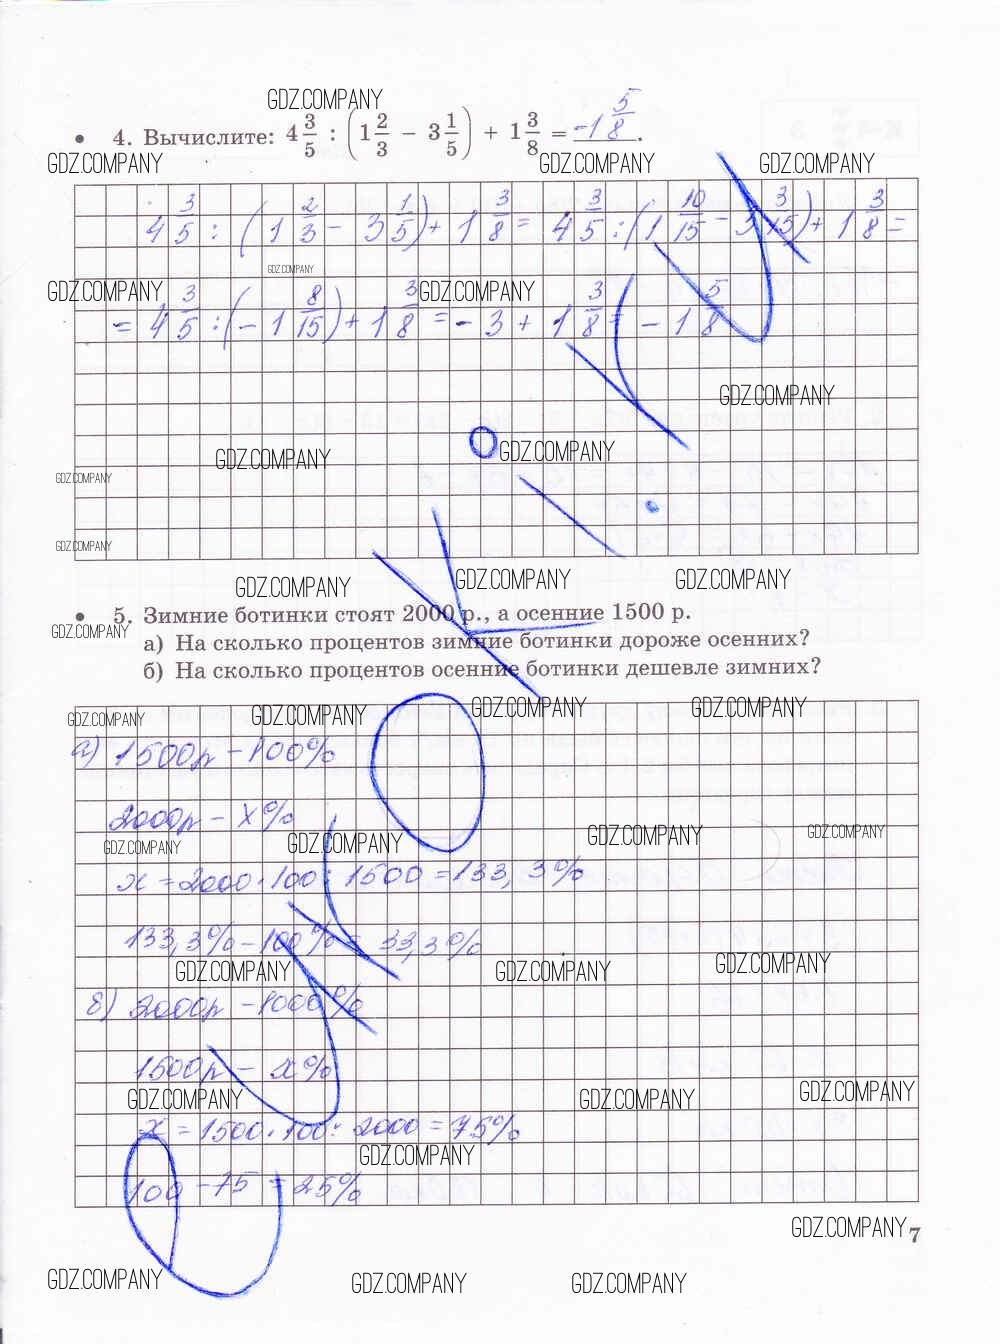 GDZ.COMPANY
4. Вычислите: 4 3/5 : (1 2/3 − 3 1/5) + 1 3/8 = -1 5/8.
GDZ.COMPANY GDZ.COMPANY GDZ.COMPANY
4 3/5 : (1 2/3 − 3 1/5) + 1 3/8 = 4 3/5 : (1 10/15 − 3 3/15) + 1 3/8 =
GDZ.COMPANY
GDZ.COMPANY GDZ.COMPANY
= 4 3/5 : (− 1 8/15) + 1 3/8 = − 3 + 1 3/8 = − 1 5/8
GDZ.COMPANY
GDZ.COMPANY GDZ.COMPANY
GDZ.COMPANY
GDZ.COMPANY
GDZ.COMPANY GDZ.COMPANY GDZ.COMPANY
5. Зимние ботинки стоят 2000 р., а осенние 1500 р.
GDZ.COMPANY
а) На сколько процентов зимние ботинки дороже осенних?
б) На сколько процентов осенние ботинки дешевле зимних?
GDZ.COMPANY GDZ.COMPANY GDZ.COMPANY GDZ.COMPANY
а) 1500р − 100%
2000р − x%
GDZ.COMPANY GDZ.COMPANY GDZ.COMPANY GDZ.COMPANY
x = 2000 · 100 : 1500 = 133,3%
133,3% − 100% = 33,3%
GDZ.COMPANY GDZ.COMPANY GDZ.COMPANY
б) 2000р − 1000%
1500р − x%
GDZ.COMPANY GDZ.COMPANY GDZ.COMPANY
x = 1500 · 100 : 2000 = 75%
GDZ.COMPANY
100 − 75 = 25%
GDZ.COMPANY 7
GDZ.COMPANY GDZ.COMPANY GDZ.COMPANY